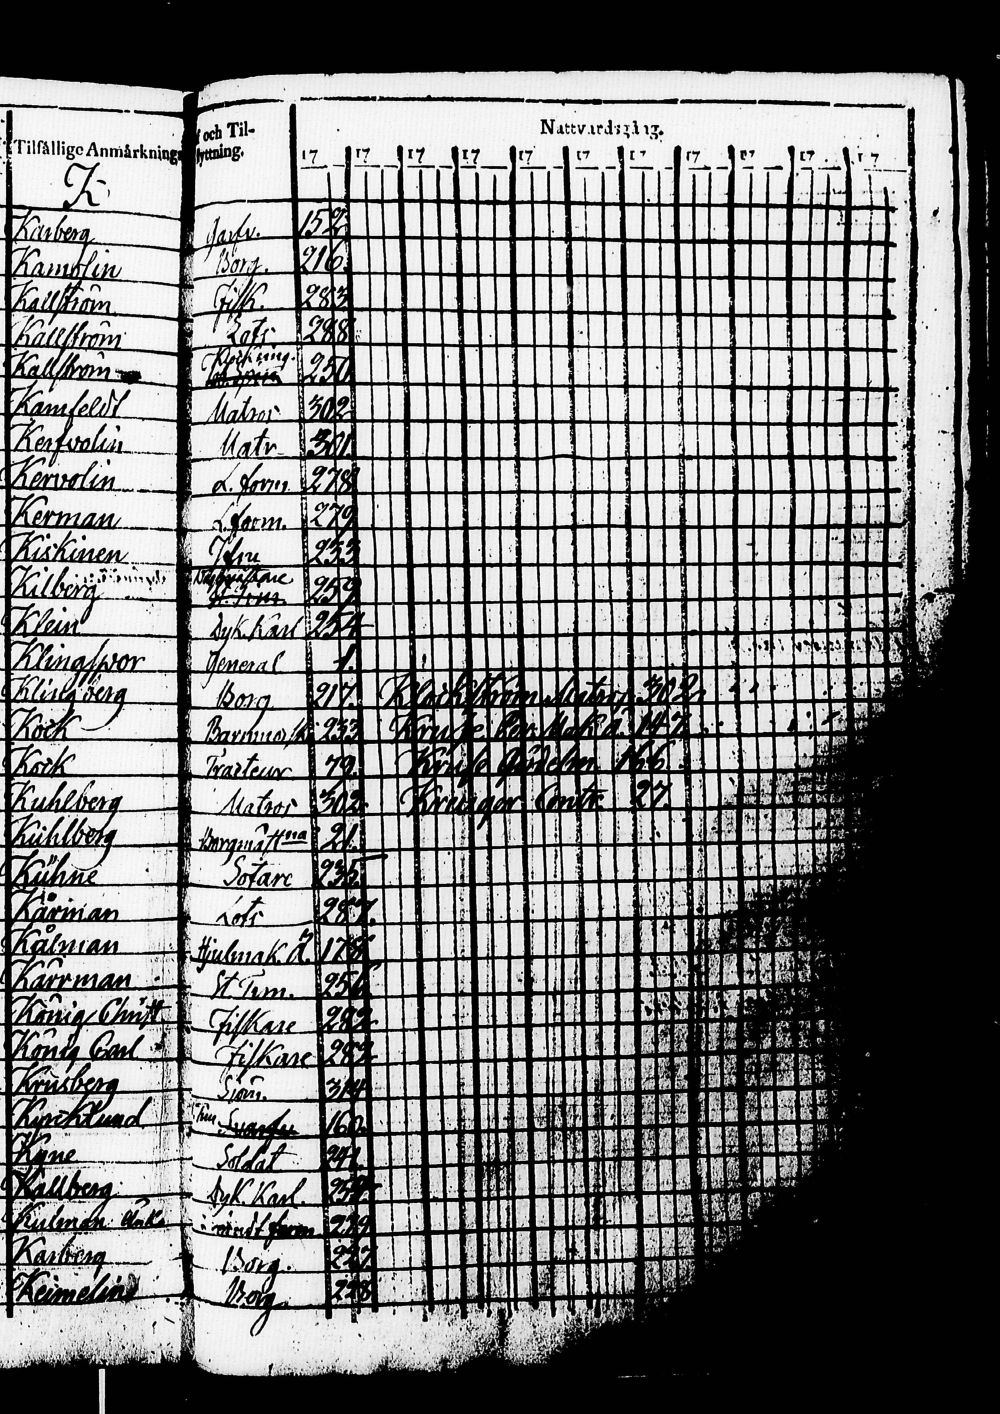 Tilfållige Anmårkning
f och Til-
lyttning.
Nattvardsgång.
17 17 17 17 17 17 17 17 17 17 17
K
Karberg 152
Kamolin Borg. 216.
Kallström Fisk. 283
Kallström Lots 288
Kallström 250
Kamfeldt Matros 302
Kerfvolin Matr 301.
Kervolin L. form. 278
Kerman L. form. 279
Kiskinen 233
Kilberg 259
Klein Dyk. Karl 254
Klingspor General 1.
Klingberg Borg 217. Klockström Matros 302.
Kock 233 Kruse Per. Mak. a. 147
Kock Tracteur 79. Kruse 166
Kuhlberg Matros 302. Kreüger Contr. 27.
Kühlberg 21.
Kühne Sotare 235
Kårman Lots 287.
Kålman Hjulmak. å. 178
Kårrman St. Tim. 256
König Christ Fiskare 282
König Carl Fiskare 282
Krusberg Sjöm. 314
Kyrcklund 160.
Kyne Soldat 241.
Kallberg Dyk. Karl. 254
Kulman 239
Karberg Borg. 227.
Keimelin Borg. 228